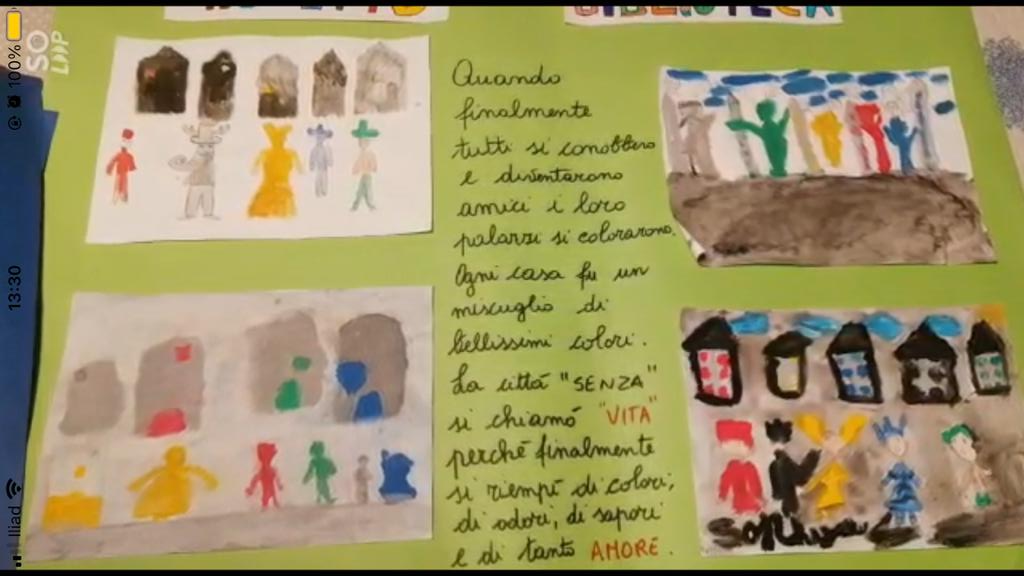 BIBLIOTECA
Quando
finalmente
tutti si conobbero
e diventarono
amici i loro
palazzi si colorarono.
Ogni casa fu un
miscuglio di
bellissimi colori.
La città "SENZA"
si chiamò "VITA"
perché finalmente
si riempì di colori,
di odori, di sapori
e di tanto AMORE.
SO
LOOP
100%
13:30
Iliad